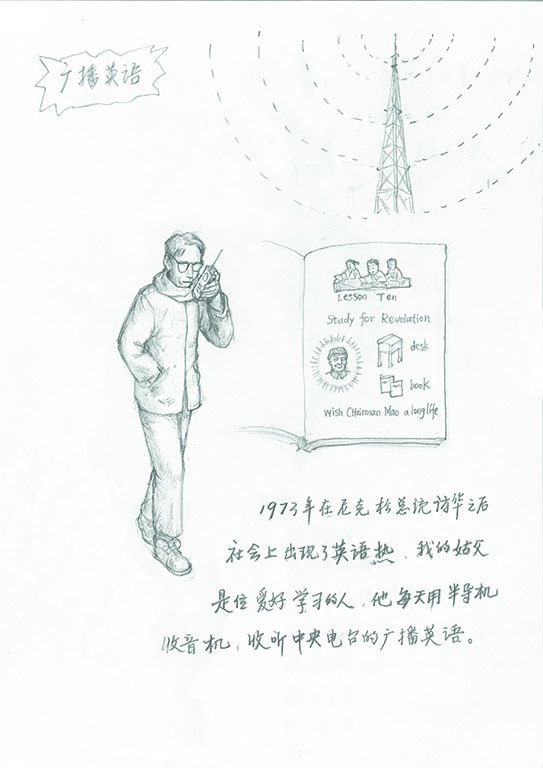 广播英语
Lesson Ten
Study for Revolation
desk
book
Wish Chairman Mao a long life
1973年在尼克松总统访华之后
社会上出现了英语热、我的姑父
是位爱好学习的人，他每天用半导机
收音机，收听中央电台的广播英语。